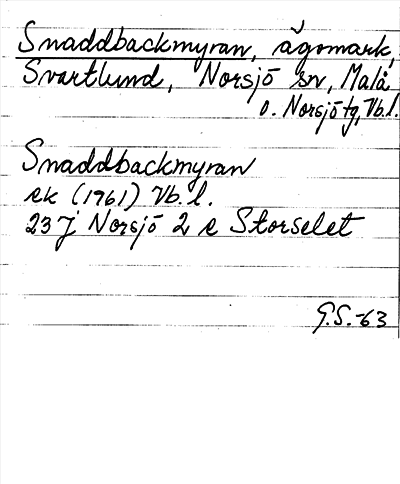 Snaddbackmyran, ägomark,
Svartlund, Norsjö sn, Malå
o. Norsjö tg, Vb.l.
Snaddbackmyran
ek (1961) Vb. l.
23 J Norsjö 2 e Storselet
G.S.-63